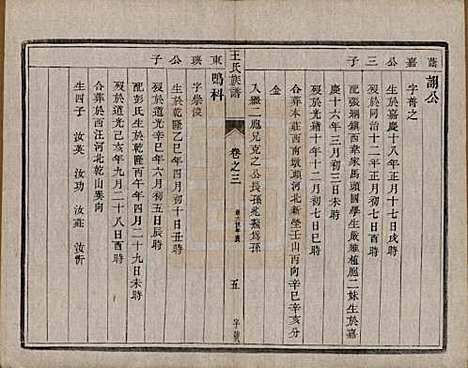 蘭嘉公三子
謝公
字善之
生於嘉慶十八年正月十七日戌時
歿於同治十二年正月初七日
配張堌鎮西韋家馬頭國學生嚴植胞二妹生於嘉
慶十六年三月初三日未時
歿於光緒十年十二月初七日巳時
合葬本莊西南坟頭河北新塋壬山丙向辛巳辛亥分
金
入繼二應兄克之公長孫兆為孫
王氏族譜
卷之三
五
東瑛公子
鴨科
字學俊
生於乾隆乙巳年四月初十日丑時
歿於道光辛巳年六月初五日辰時
配彭氏生於乾隆丙午年四月二十九日未時
歿於道光己亥年九月二十八日酉時
合葬於西汪河北乾山巽向
生四子 汝英 汝功 汝莊 汝忻